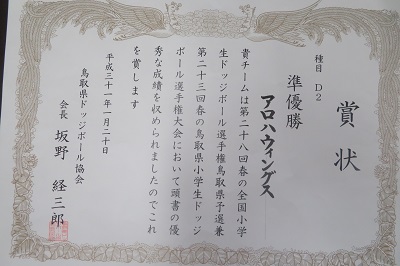 賞状
種目 D2
準優勝
アロハウィングス
貴チームは第二十八回春の全国小学
生ドッジボール選手権鳥取県予選兼
第二十三回春の鳥取県小学生ドッジ
ボール選手権大会において頭書の優
秀な成績を収められましたのでこれ
を賞します
平成三十一年一月二十日
鳥取県ドッジボール協会
会長 坂野 経三郎